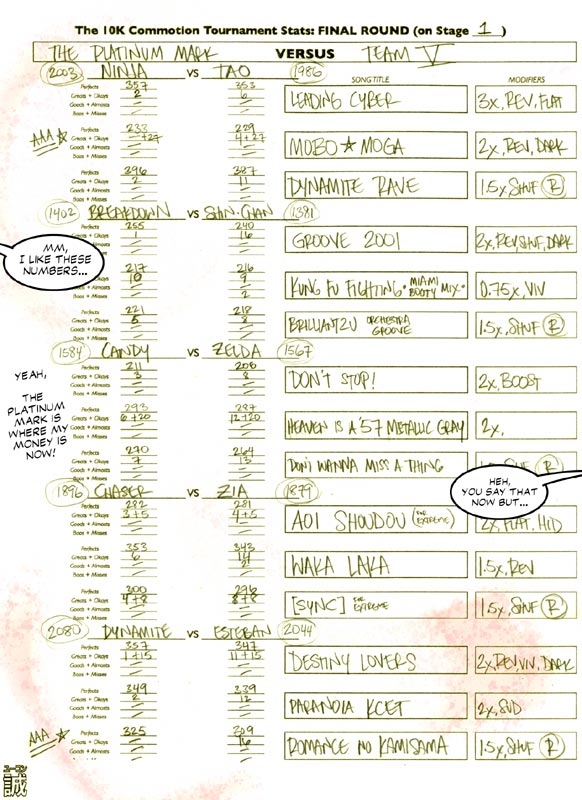 The 10K Commotion Tournament Stats: FINAL ROUND (on Stage 1)
THE PLATINUM MARK VERSUS TEAM V
2003 NINJA VS TAO 1986 SONG TITLE MODIFIERS
Perfects 357 353
Greats + Okays 2 6
Goods + Almosts
Boos + Misses
LEADING CYBER 3x, REV, FLAT
AAA ☆
Perfects 233 229
Greats + Okays +27 4+27
Goods + Almosts
Boos + Misses
MOBO ☆ MOGA 2x, REV, DARK
Perfects 396 387
Greats + Okays 2 11
Goods + Almosts
Boos + Misses
DYNAMITE RAVE 1.5x SHUF R
1402 BREAKDOWN VS SHN. CHAN 1381
Perfects 255 240
Greats + Okays 1 16
Goods + Almosts
Boos + Misses
GROOVE 2001 2x, REV SHUF, DARK
MM,
I LIKE THESE
NUMBERS...
217 216
Greats + Okays 10 9
Goods + Almosts
Boos + Misses 2
KUNG FU FIGHTING • MIAMI BOOTY MIX • 0.75x, VIV
Perfects 221 218
Greats + Okays 5 8
Goods + Almosts
Boos + Misses
BRILLIANT 2U ORCHESTRA GROOVE 1.5x, SHUF R
1584 CANDY VS ZELDA 1567
Perfects 211 208
Greats + Okays 3 8
Goods + Almosts
Boos + Misses
DON'T STOP! 2x, BOOST
YEAH,
THE
PLATINUM
MARK IS
WHERE MY
MONEY IS
NOW!
Perfects 293 287
Greats + Okays 6+20 12+20
Goods + Almosts
Boos + Misses
HEAVEN IS A '57 METALLIC GRAY 2x,
Perfects 270 264
Greats + Okays 7 13
Goods + Almosts
Boos + Misses
DON'T WANNA MISS A THING R
HEH,
YOU SAY THAT
NOW BUT...
1896 CHASER VS ZIA 1879
Perfects 282 281
Greats + Okays +5 4+5
Goods + Almosts
Boos + Misses
AOI SHOUDOU (FOR EXTREME) 2x, FLAT, HID
Perfects 353 343
Greats + Okays 6 14
Goods + Almosts 2
Boos + Misses
WAKA LAKA 1.5x, REV
Perfects 300 296
Greats + Okays 4+8 8+8
Goods + Almosts
Boos + Misses
[SYNC] FOR EXTREME 1.5x, SHUF R
2080 DYNAMITE VS ESTEBAN 2044
Perfects 357 347
Greats + Okays 1+15 11+15
Goods + Almosts
Boos + Misses
DESTINY LOVERS 2x, REV VIV, DARK
Perfects 349 339
Greats + Okays 2 12
Goods + Almosts
Boos + Misses
PARANOIA KCET 2x, SUD
AAA ☆
Perfects 325 309
Greats + Okays 16
Goods + Almosts
Boos + Misses
ROMANCE NO KAMISAMA 1.5x, SHUF R